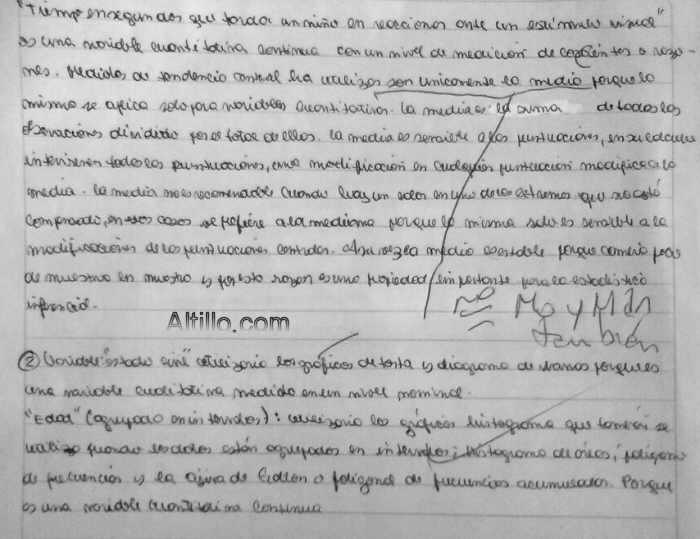 "Tiempo en segundos que tarda un niño en reaccionar ante un estimulo visual"
es una variable cuantitativa continua con un nivel de medición de cocientes o razo-
nes. Medidas de tendencia central ha utilizar son unicamente la media porque la
misma se aplica solo para variables cuantitativas. La media es la suma de todas las
observaciones dividido por el total de ellos. La media es sensible a las puntuaciones, en su calculo
intervienen todas las puntuaciones, una modificación en cualquier puntuación modifica a la
media. La media no es recomendable cuando hay un valor en uno de los extremos que no está
comprobado, en esos casos se prefiere a la mediana porque la misma solo es sensible a la
modificaciones de las puntuaciones centrales. A su vez la media es estable porque cambia poco
de muestra en muestra y por esta razon es una propiedad importante para la estadística
inferencial.
NO Mo y Mdn
también
Altillo.com
② Variable "estado civil" utilizaria los gráficos de torta y diagrama de barras porque es
una variable cualitativa medida en un nivel nominal.
"Edad" (agrupado en intervalos): utilizaria los gráficos histograma que también se
utiliza cuando los datos están agrupados en intervalos; histograma de áreas, poligono
de frecuencias y la ojiva de Galton o poligonal de frecuencias acumuladas. Porque
es una variable cuantitativa continua